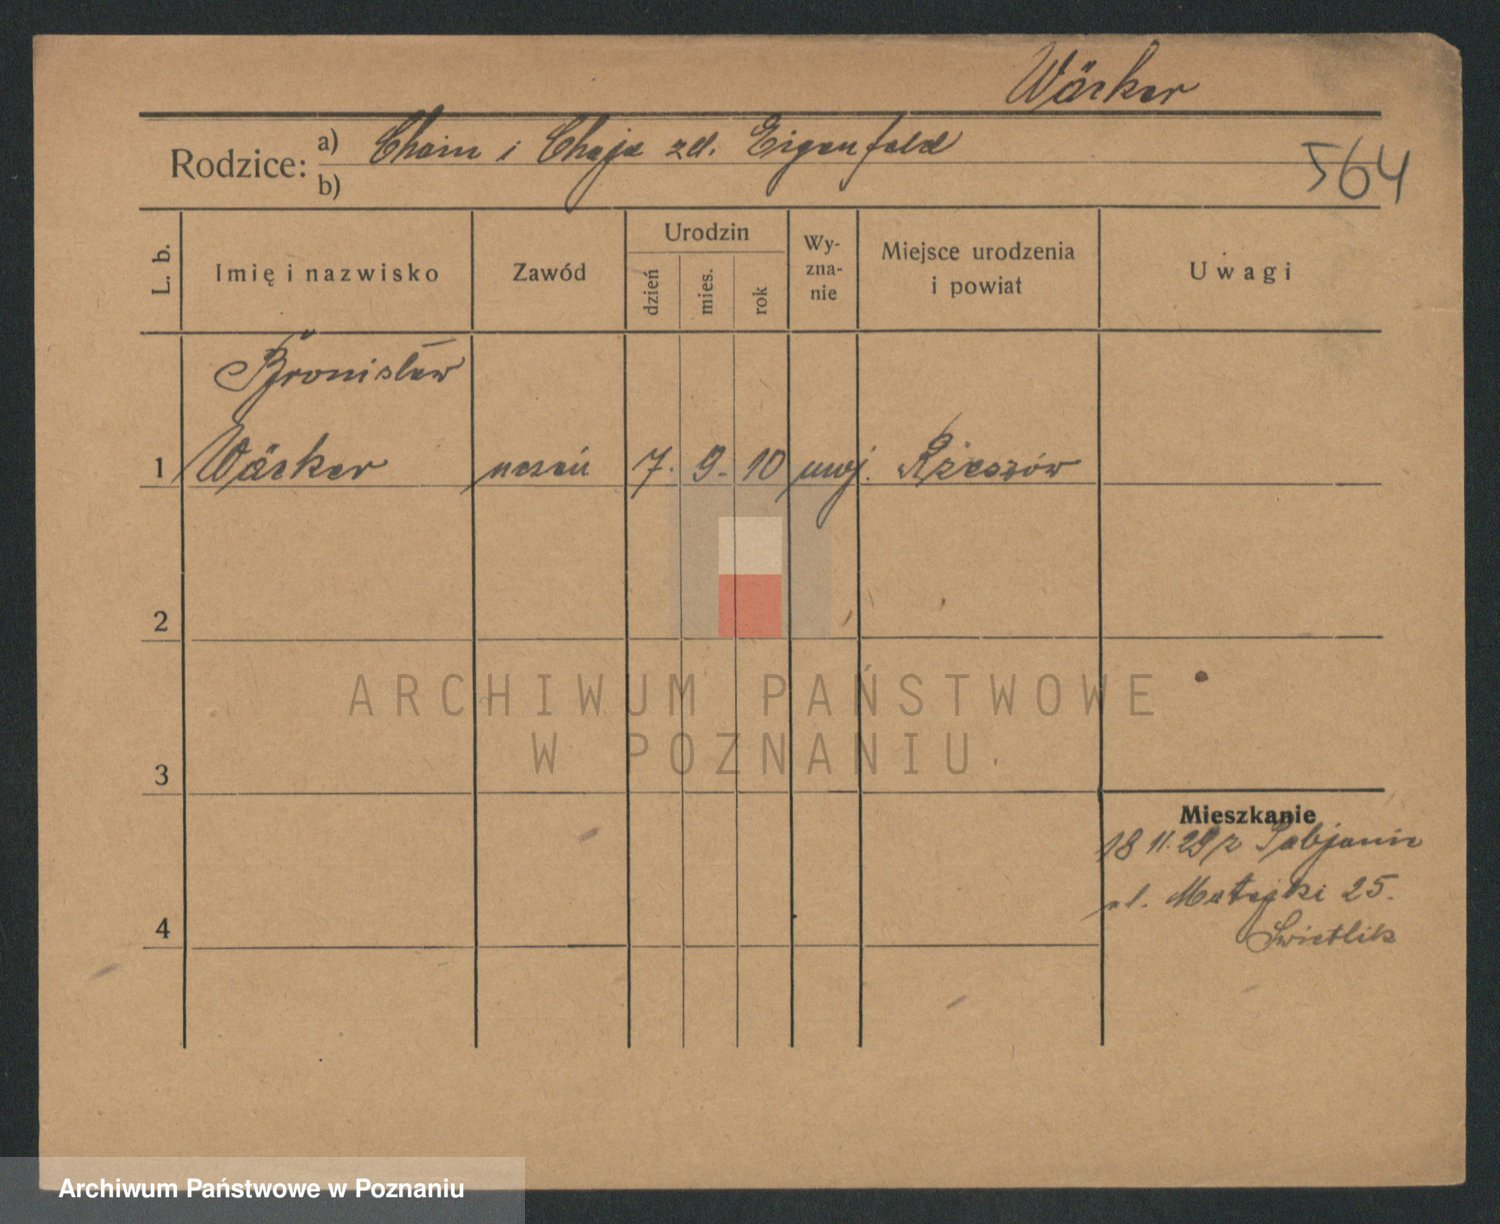 Wäcker
Rodzice: a) Chaim i Chaja zd. Eigenfeld
564
b)
L. b. Imię i nazwisko Zawód Urodzin dzień mies. rok Wy-zna-nie Miejsce urodzenia i powiat Uwagi
Bronisław
1 Wäcker uczeń 7. 9. 10 mojż. Rzeszów
2
ARCHIWUM PAŃSTWOWE
W POZNANIU
3
Mieszkanie
18 11. 29 z Pabjanic
ul. Matejki 25.
4
Swietlik
Archiwum Państwowe w Poznaniu